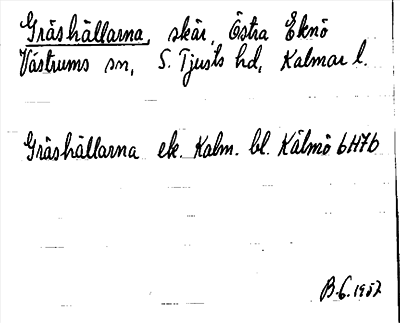 Gräshällarna, skär, Östra Eknö
Västrums sn, S. Tjusts hd, Kalmar l.
Gräshällarna ek. Kalm. bl. Kälmö 6H7b
B.G. 1952